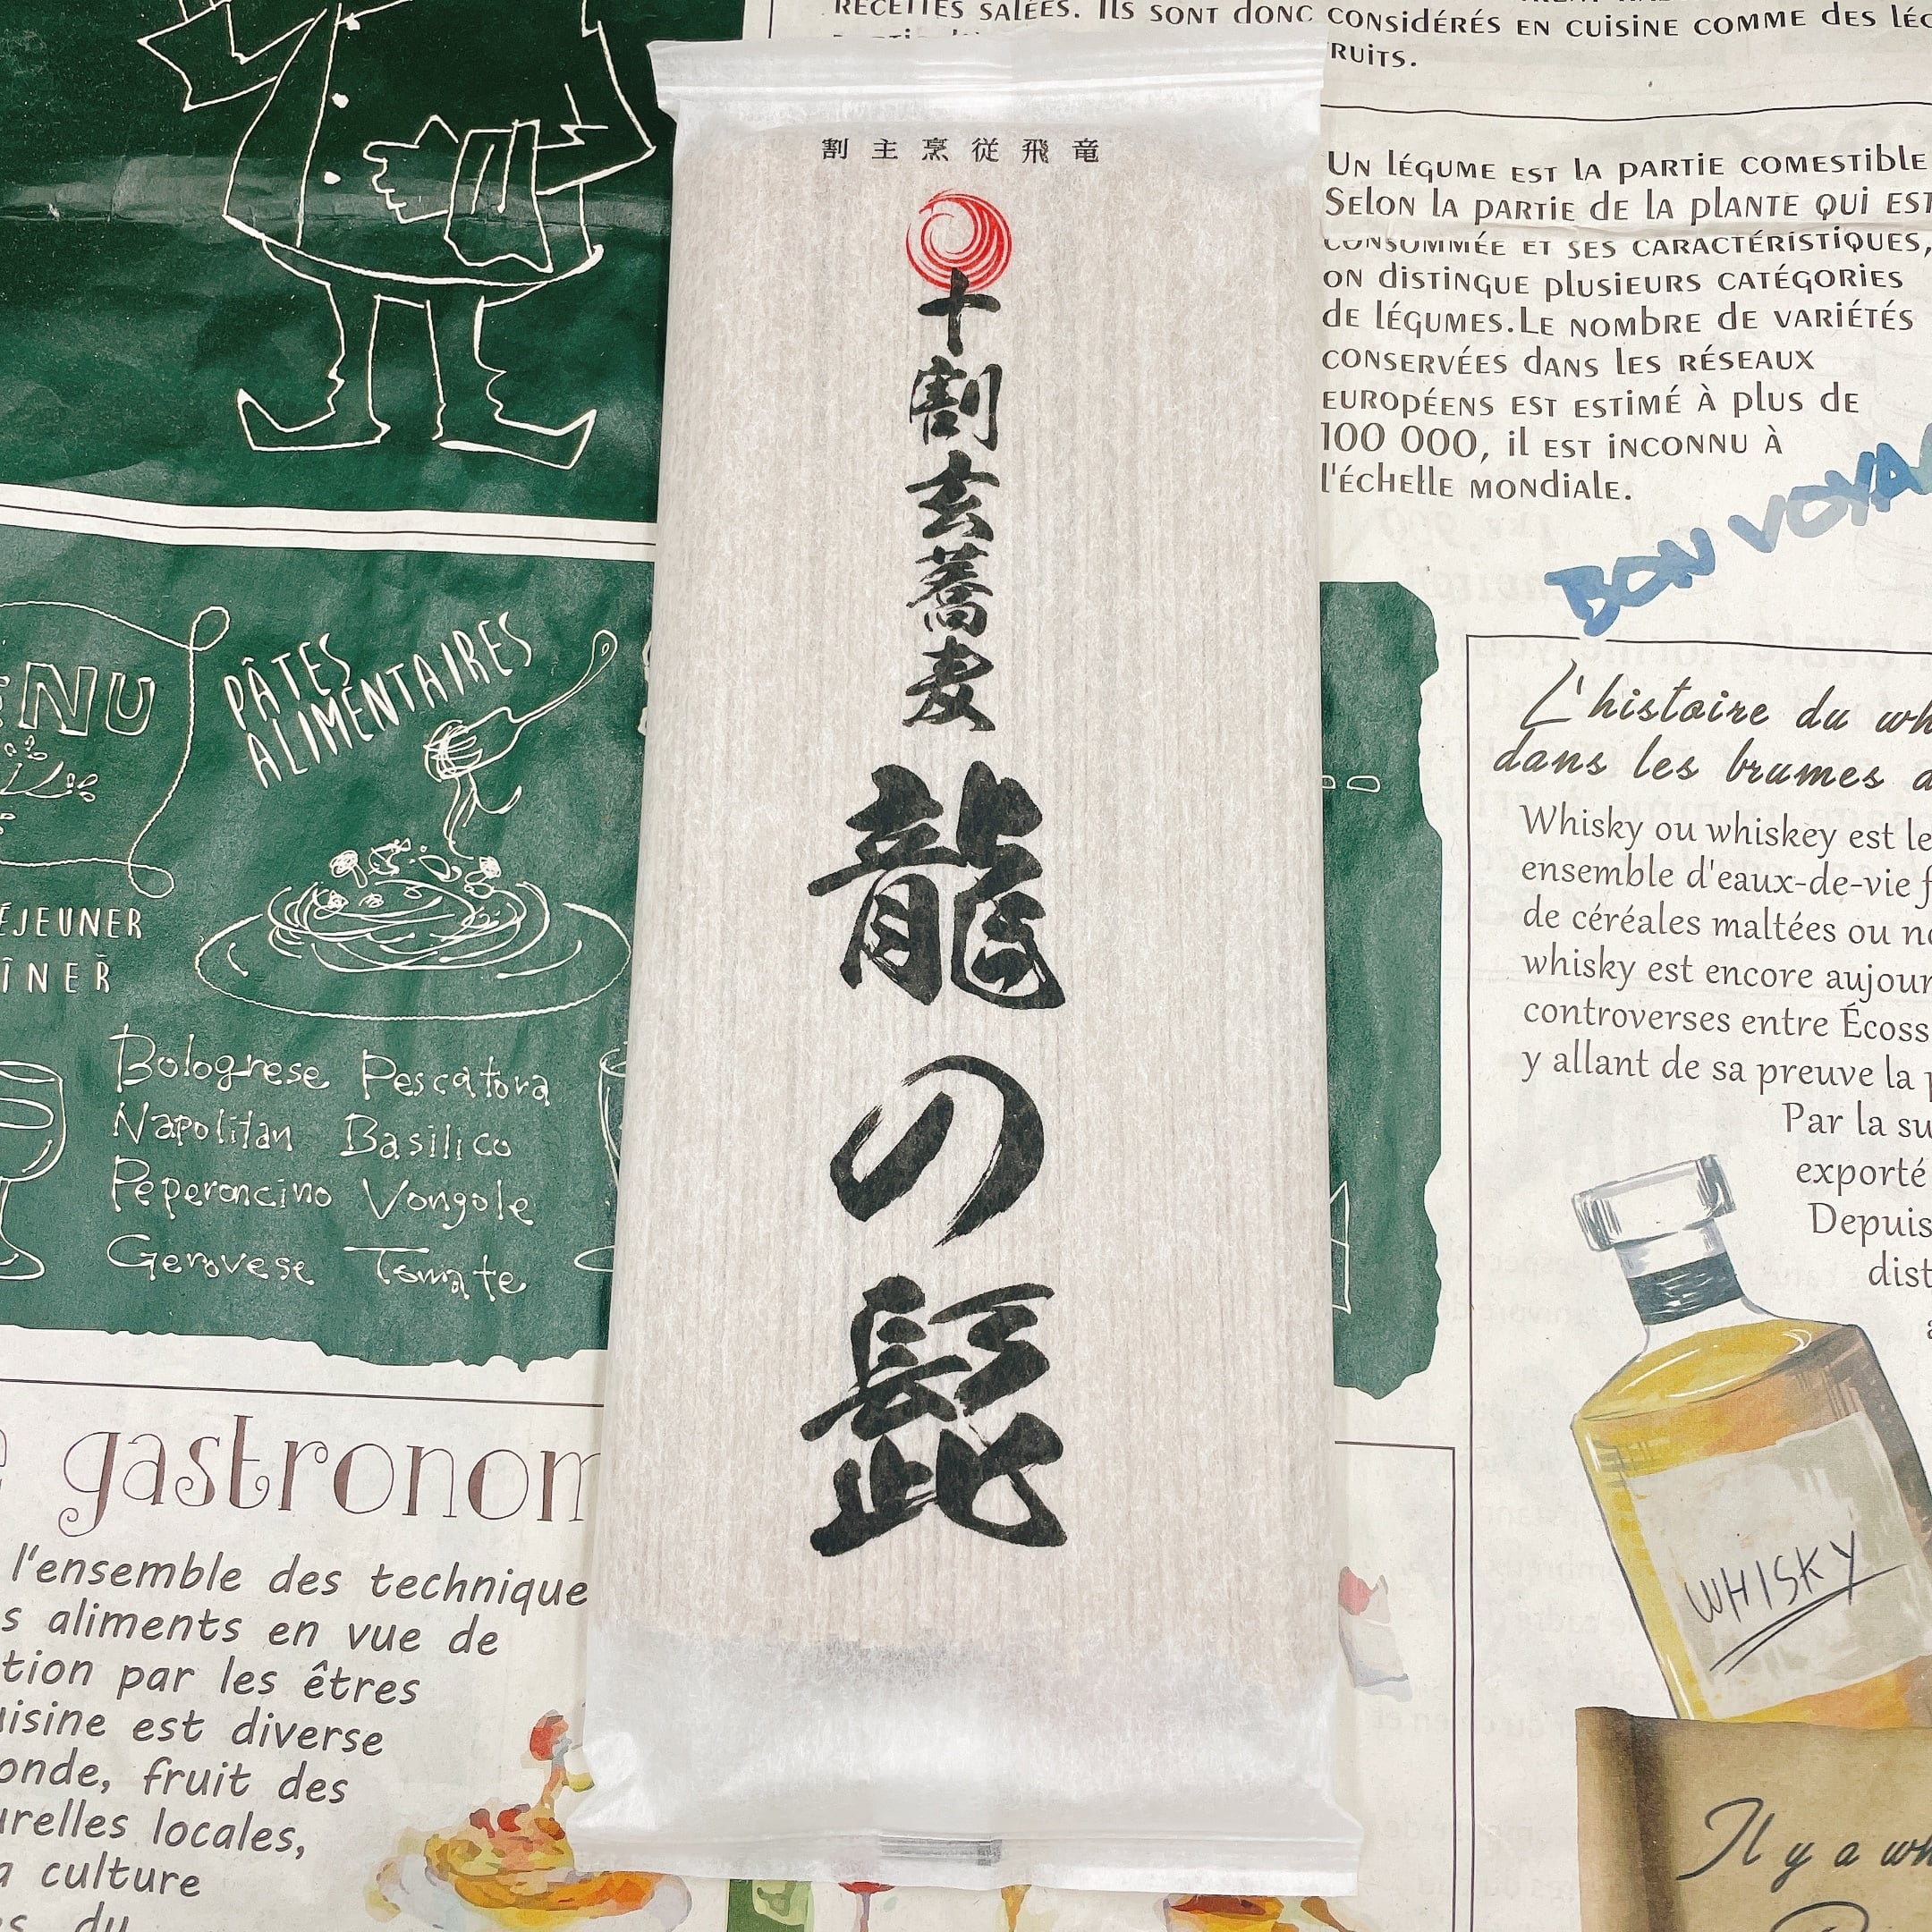 RECETTES SALÉES. ILS SONT DONC CONSIDÉRÉS EN CUISINE COMME DES
RUITS.
割主烹従飛竜
十割玄蕎麦
龍の髭
UN LÉGUME EST LA PARTIE COMESTIBLE
SELON LA PARTIE DE LA PLANTE QUI EST
CONSOMMÉE ET SES CARACTÉRISTIQUES,
ON DISTINGUE PLUSIEURS CATÉGORIES
DE LÉGUMES.LE NOMBRE DE VARIÉTÉS
CONSERVÉES DANS LES RÉSEAUX
EUROPÉENS EST ESTIMÉ À PLUS DE
100 000, IL EST INCONNU À
L'ÉCHELLE MONDIALE.
BON VOYA
ENU
PÂTES
ALIMENTAIRES
ÉJEUNER
ÎNER
Bolognese Pescatora
Napolitan Basilico
Peperoncino Vongole
Genovese Tomate
L'histoire du wh
dans les brumes d
Whisky ou whiskey est le
ensemble d'eaux-de-vie f
de céréales maltées ou no
whisky est encore aujour
controverses entre Écoss
y allant de sa preuve la p
Par la su
exporté
Depuis
dist
WHISKY
Il y a wh
e gastronom
l'ensemble des technique
s aliments en vue de
tion par les êtres
uisine est diverse
onde, fruit des
urelles locales,
a culture
es du